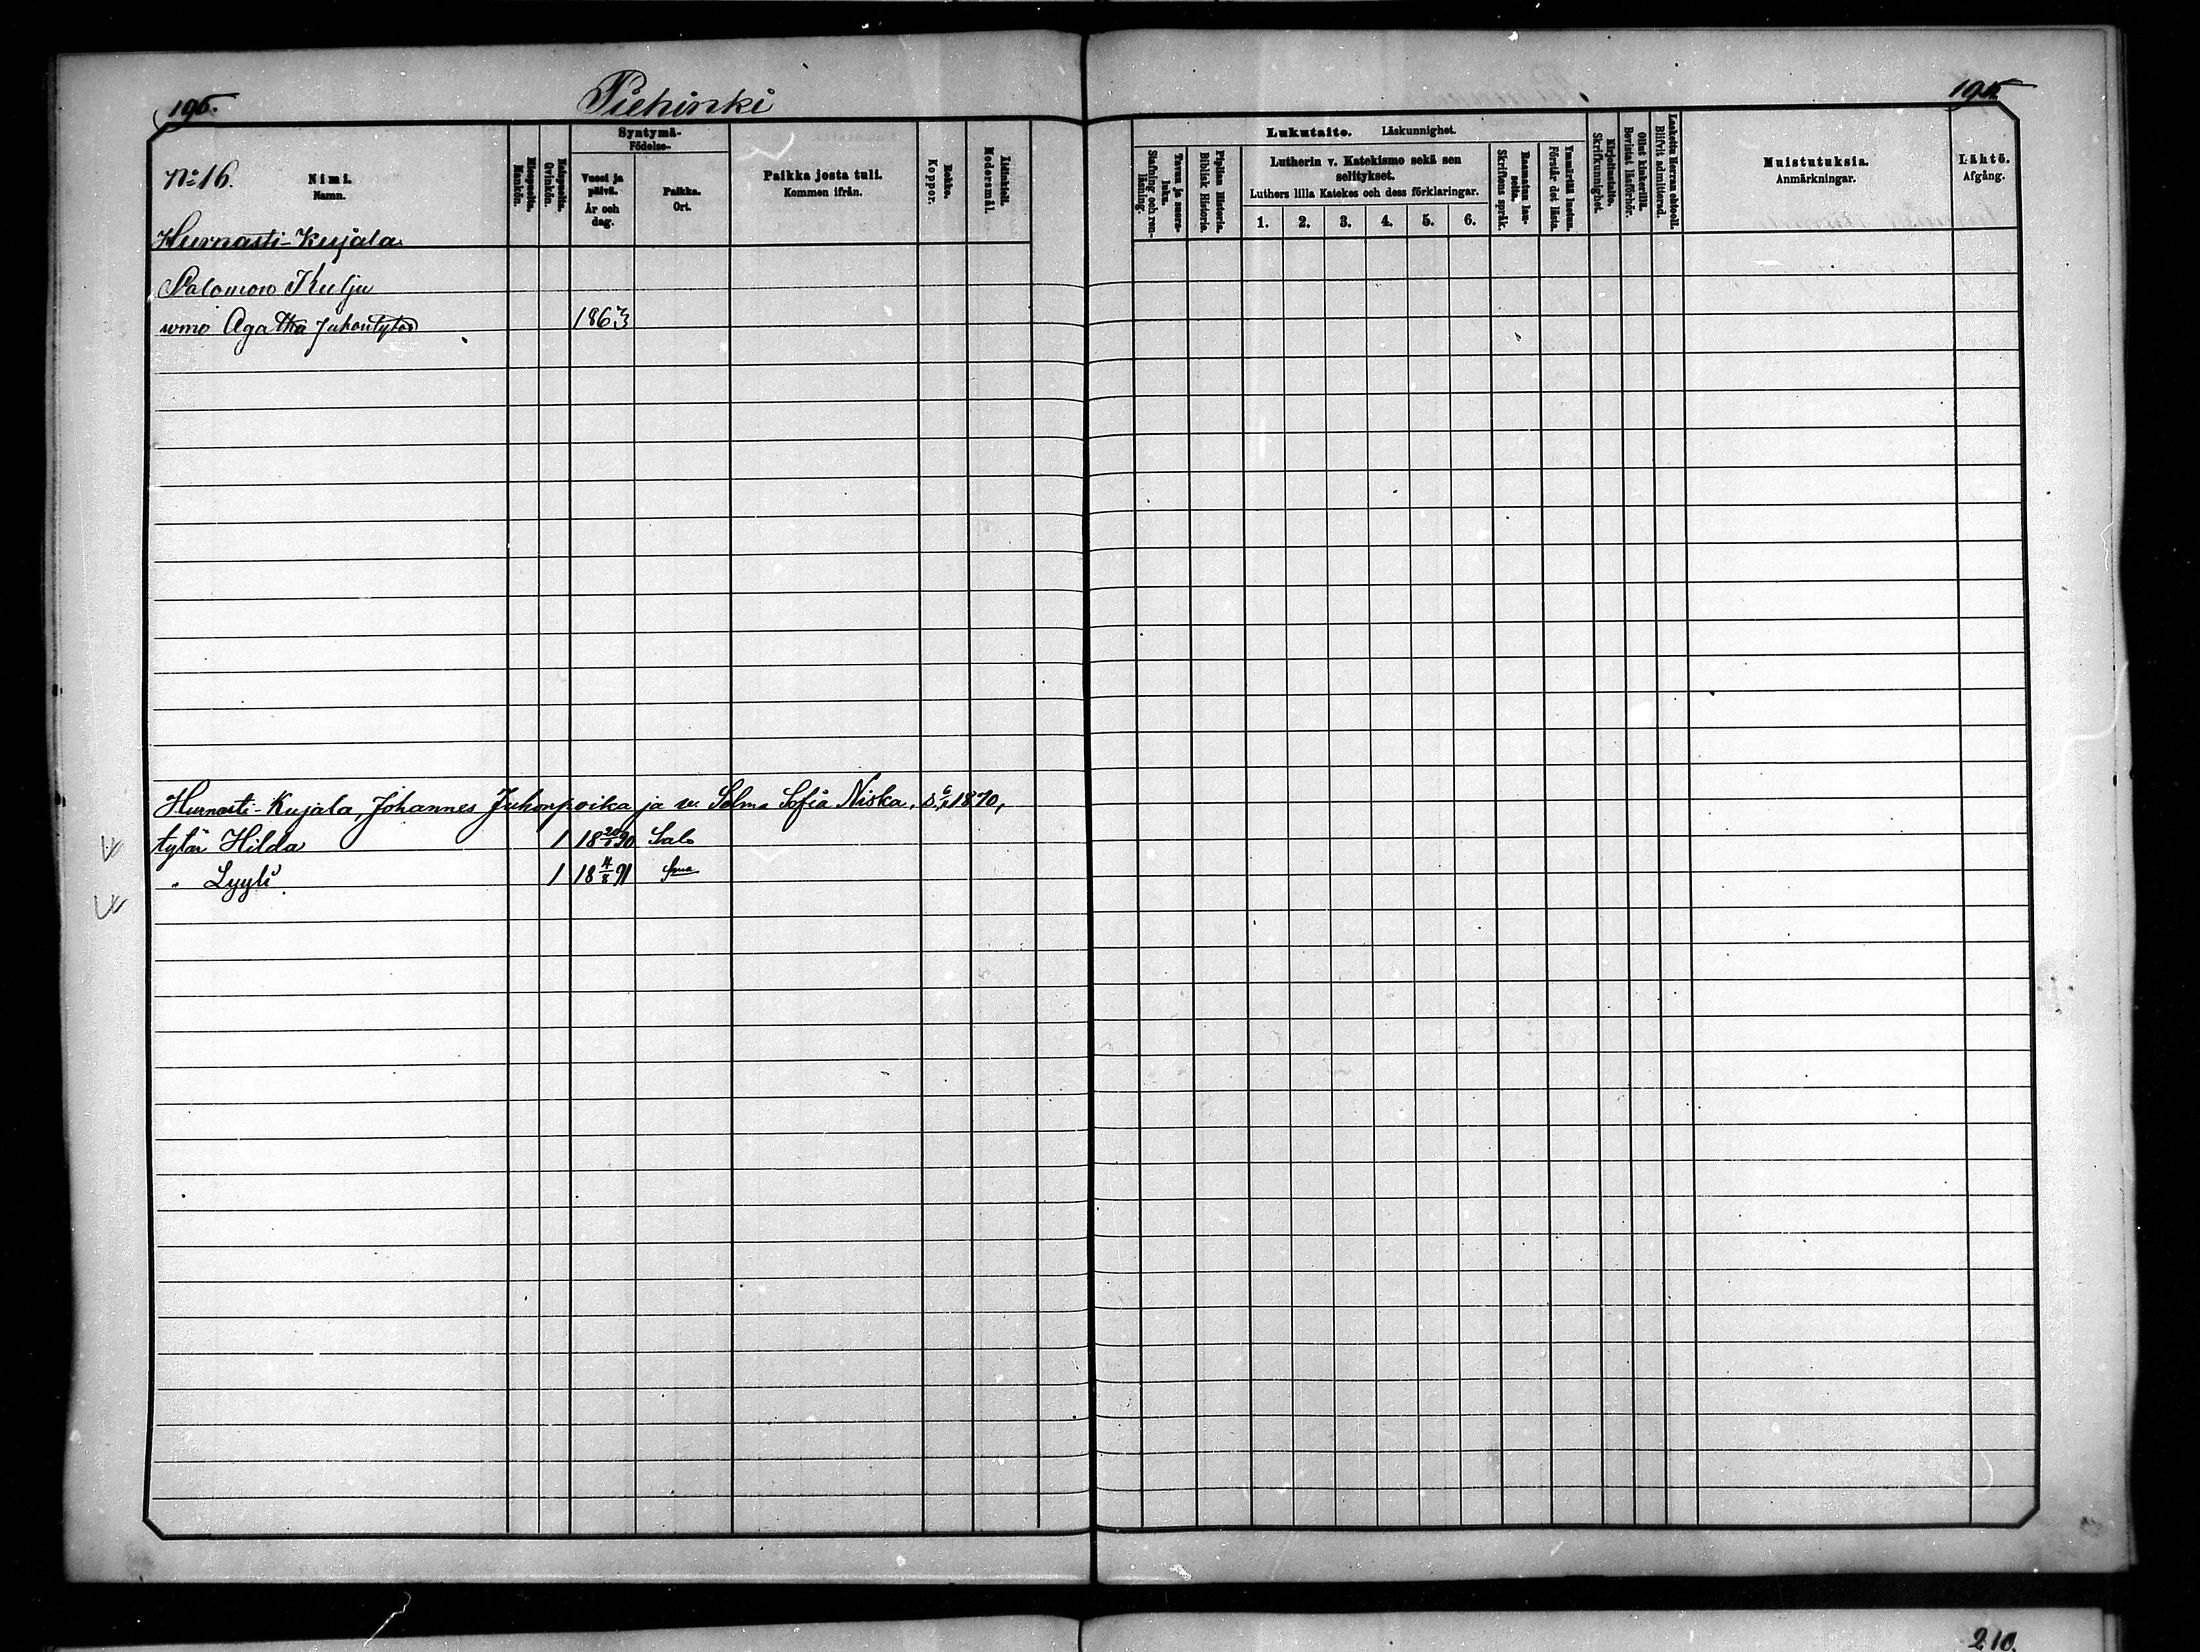 195.
Piehinki
195
No 16.
Nimi.
Namn.
Miespuolia.
Mankön.
Naispuolia.
Qvinkön.
Syntymä-
Födelse-
Vuosi ja
päivä.
År och
dag.
Paikka.
Ort.
Paikka josta tuli.
Kommen ifrån.
Rokko.
Koppor.
Äidinkieli.
Modersmål.
Tavuu ja suora-
luku.
Stafning och ren-
läsning.
Piplian Historia.
Biblisk Historie.
Lukutaito. Läskunnighet.
Lutherin v. Katekismo sekä sen
selitykset.
Luthers lilla Katekes och dess förklaringar.
1. 2. 3. 4. 5. 6.
Raamatun lau-
seita.
Skriftens språk.
Ymmärtää luetun.
Förstår det lästa.
Kirjoitustaito.
Skrifkunnighet.
Ollut kinkerillä.
Bevistat läsförhör.
Laskettu Herran ehtooll.
Blifvit admitterad.
Muistutuksia.
Anmärkningar.
Lähtö.
Afgång.
Hurnasti-Kujala
Salomon Kulju
wmo Agatha Juhontytär 1863
Hurnasti-Kujala, Johannes Juhonpoika ja v. Selma Sofia Niska, s. 1870,
tytär Hilda 1 18 90 Salo
" Lyyli 1 18 4/8 91 Sma
210.